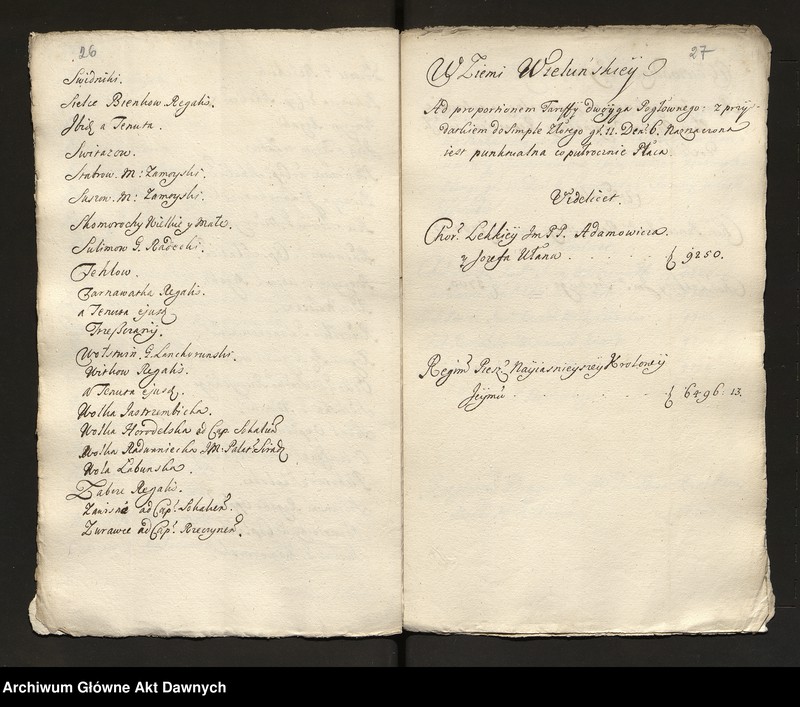 26
Swidniki.
Sielce Bienkow Regalis.
Zbią a Tenuta.
Switazow.
Stabrow. M: Zamoyski.
Suszow. M: Zamoyski.
Skomorochy Wielkie y Małe.
Sulimow G. Radecki.
Tehlow.
Tarnawatka Regalis.
a Tenuta ejusd
Trzeszczany.
Wołswin. G. Lanckorunski.
Witkow Regalis.
a Tenuta ejusd.
Wolka Jastrumbicka.
Wolka Horodelska ad Cap. Sokalien
Wolka Radwaniecka JM: Palat. Sirad
Wola Łabunska.
Zabcze Regalis.
ad Cap. Sokalien.
Zurawce ad Cap. Rzeczynen.
27
W Ziemi Wieluńskiey
Ad proportionem Tariffy dwoyga Pogłownego: z przy-
datkiem do Simple Złotego gr. 11. Den. 6. Naznaczona
iest punktualna co pułrocznie Płaca.
Videlicet.
Chor. Lekkiey Jm PP. Adamowicza
y Jozefa Ułana . . . . . 9250.
Regim Piesz Nayiasnieyszey Krolowey
Jeymci . . . . . 6496: 13.
Archiwum Główne Akt Dawnych